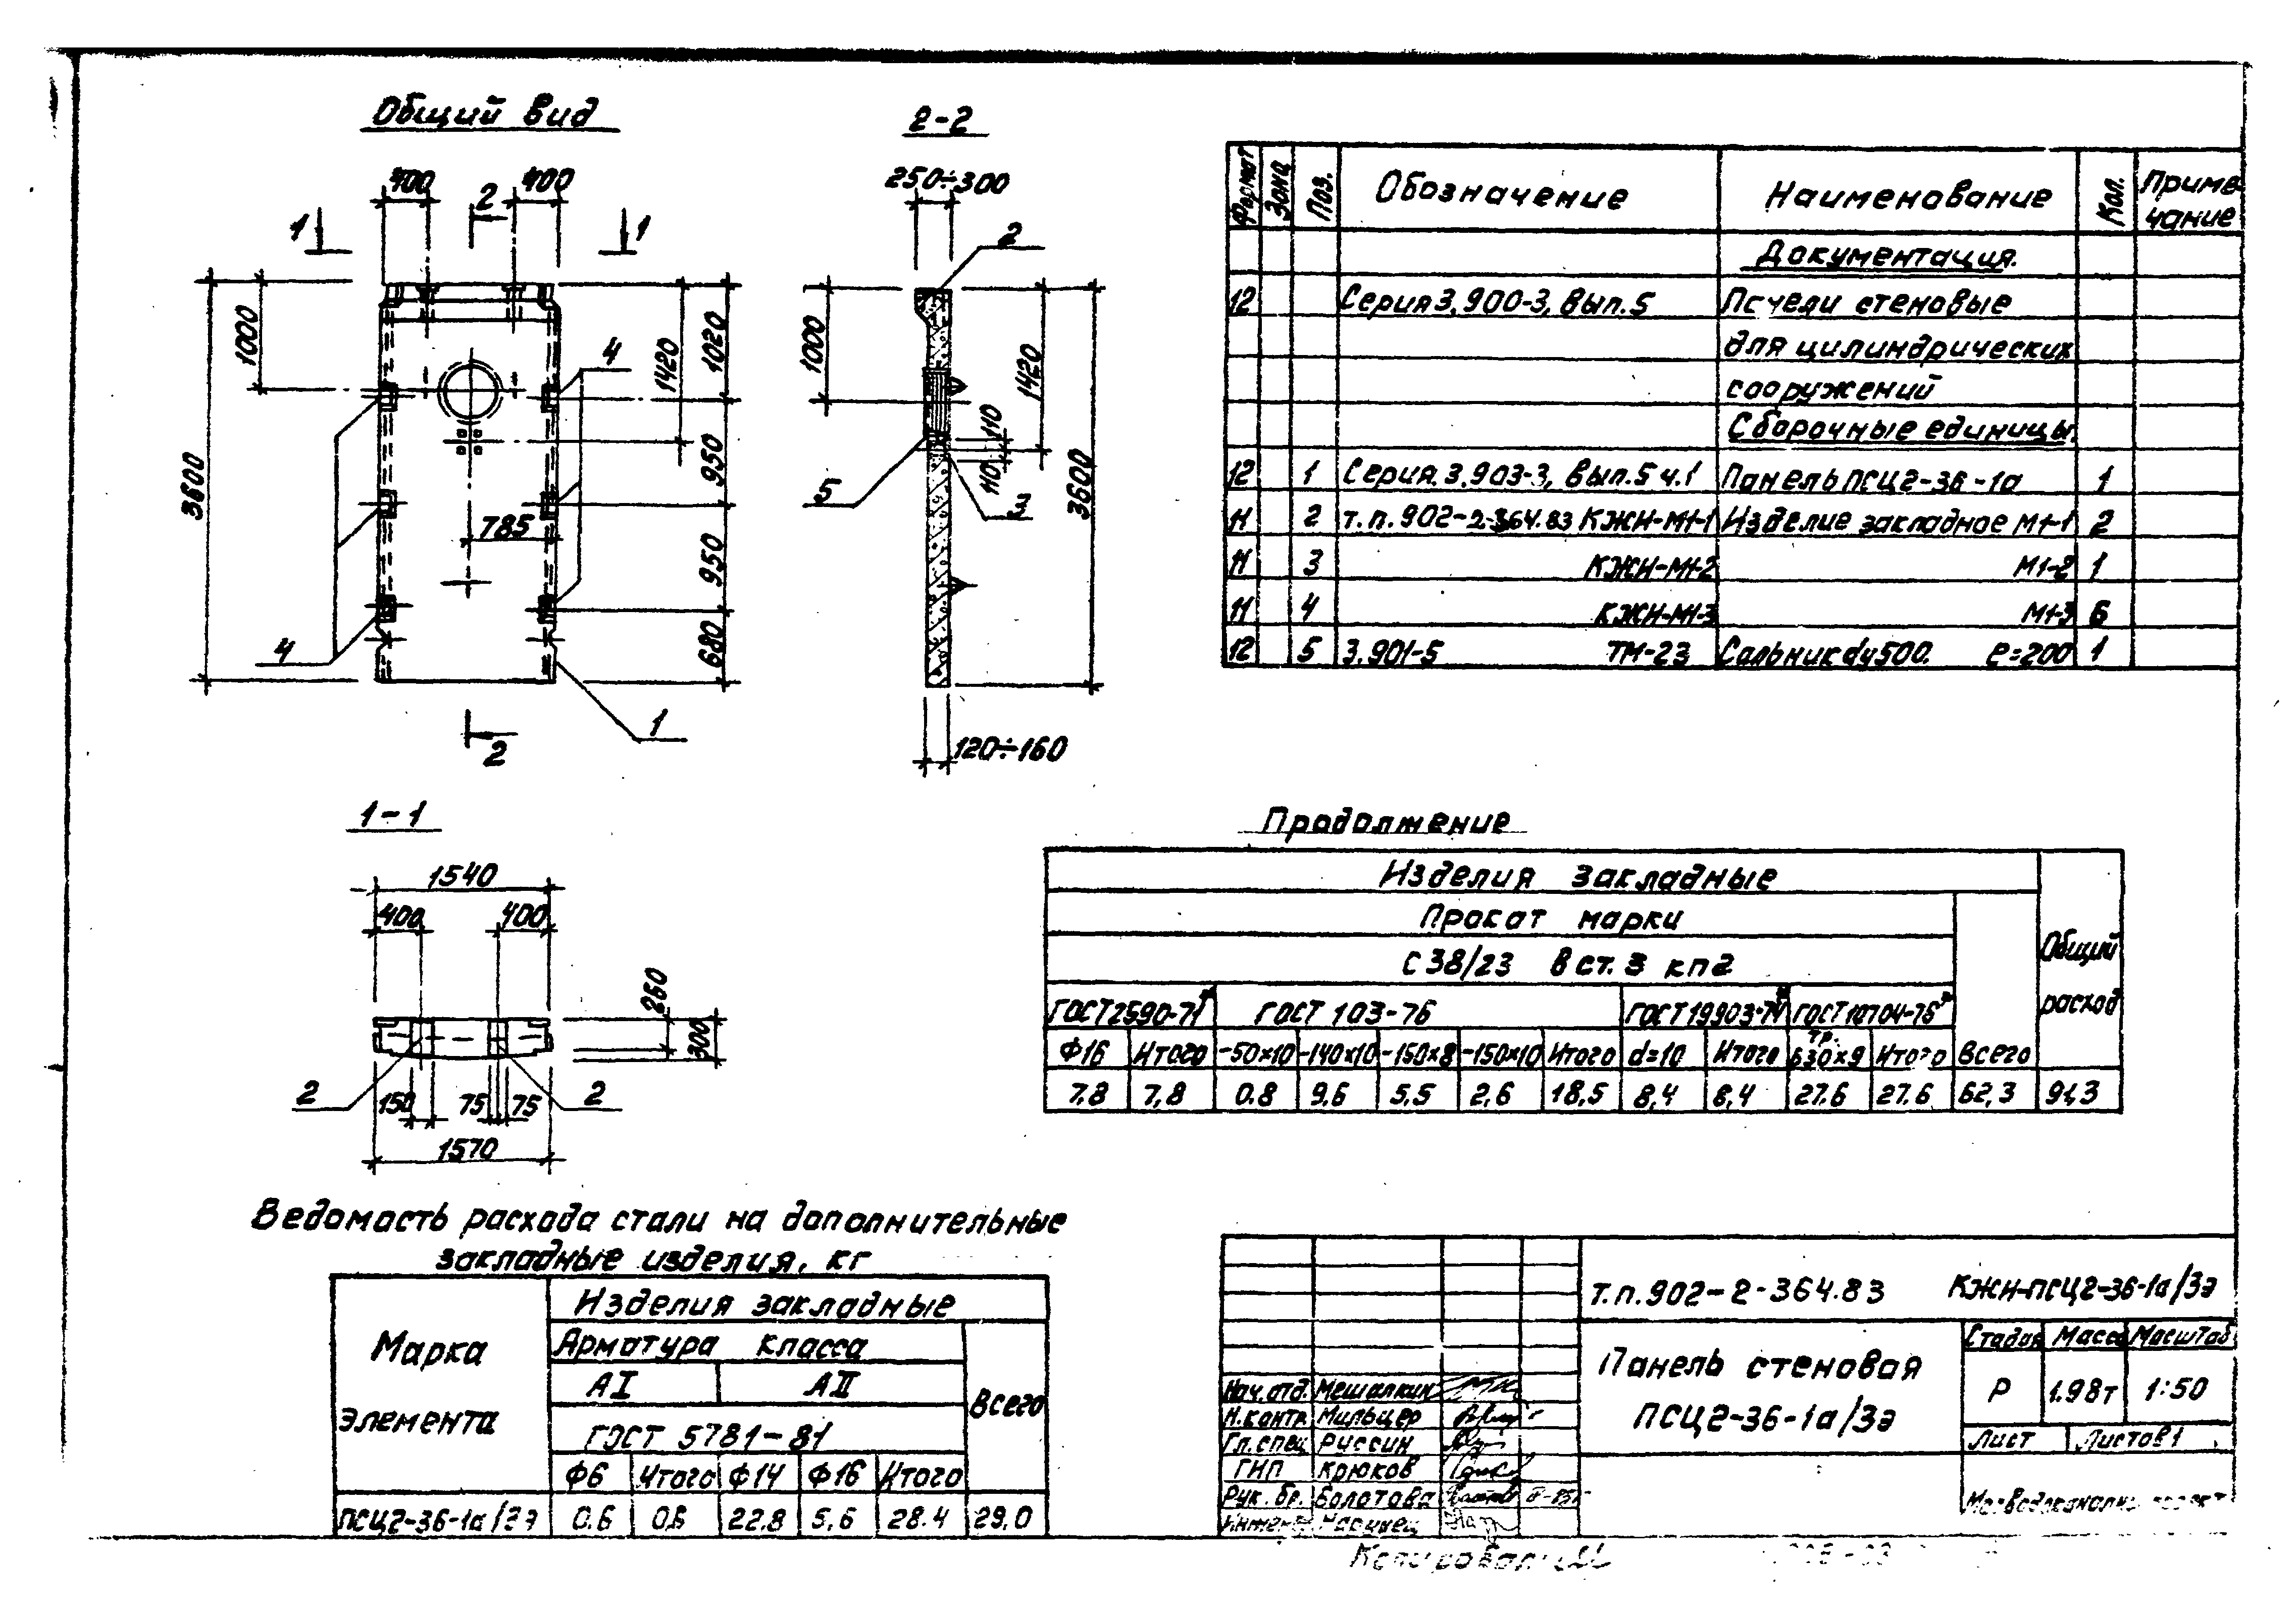 Общий вид
400 400
2
1 1
1000
3600
1420
1020
950
950
680
785
4
4
1
2
2-2
250÷300
2
1000
1420
3600
110
110
5
3
120÷160
1-1
1540
400 400
260
300
2 2
150 75 75
1570
Формат Зона Поз. Обозначение Наименование Кол. Приме-
чание
Документация.
12 Серия 3.900-3, вып. 5 стеновые
для цилиндрических
сооружений
Сборочные единицы.
12 1 Серия 3.903-3, вып.5 ч.1 Панель ПСЦ2-36-1а 1
11 2 т.п. 902-2-364.83 КЖИ-М1-1 Изделие закладное М1-1 2
11 3 КЖИ-М1-2 М1-2 1
11 4 КЖИ-М1-3 М1-3 6
12 5 3.901-5 ТМ-23 Сальник dу500. ℓ=200 1
Продолжение
Изделия закладные
Прокат марки
С 38/23 вст. 3 кп2
Общий
расход
ГОСТ 2590-71* ГОСТ 103-76 ГОСТ 19903-74* ГОСТ 10704-76*
Ф16 Итого -50×10 -140×10 -150×8 -150×10 Итого d=10 Итого тр. 630×9 Итого Всего
7,8 7,8 0.8 9,6 5,5 2,6 18,5 8,4 8,4 27.6 27.6 62,3 91,3
Ведомость расхода стали на дополнительные
закладные изделия, кг
Марка
элемента
Изделия закладные
Арматура класса
АI АII
Всего
ГОСТ 5781-81
Ф6 Итого Ф14 Ф16 Итого
ПСЦ2-36-1а/3э 0.6 0,6 22.8 5,6 28.4 29,0
т.п. 902-2-364.83 КЖИ-ПСЦ2-36-1а/3э
Панель стеновая
ПСЦ2-36-1а/3э
Стадия Масса Масштаб
Р 1.98т 1:50
Лист Листов 1
Нач.отд. Мешалкин
Н.контр. Мильцер
Гл.спец. Руссин
ГИП Крюков
Рук. бр. Болотова
Инженер
Копировал